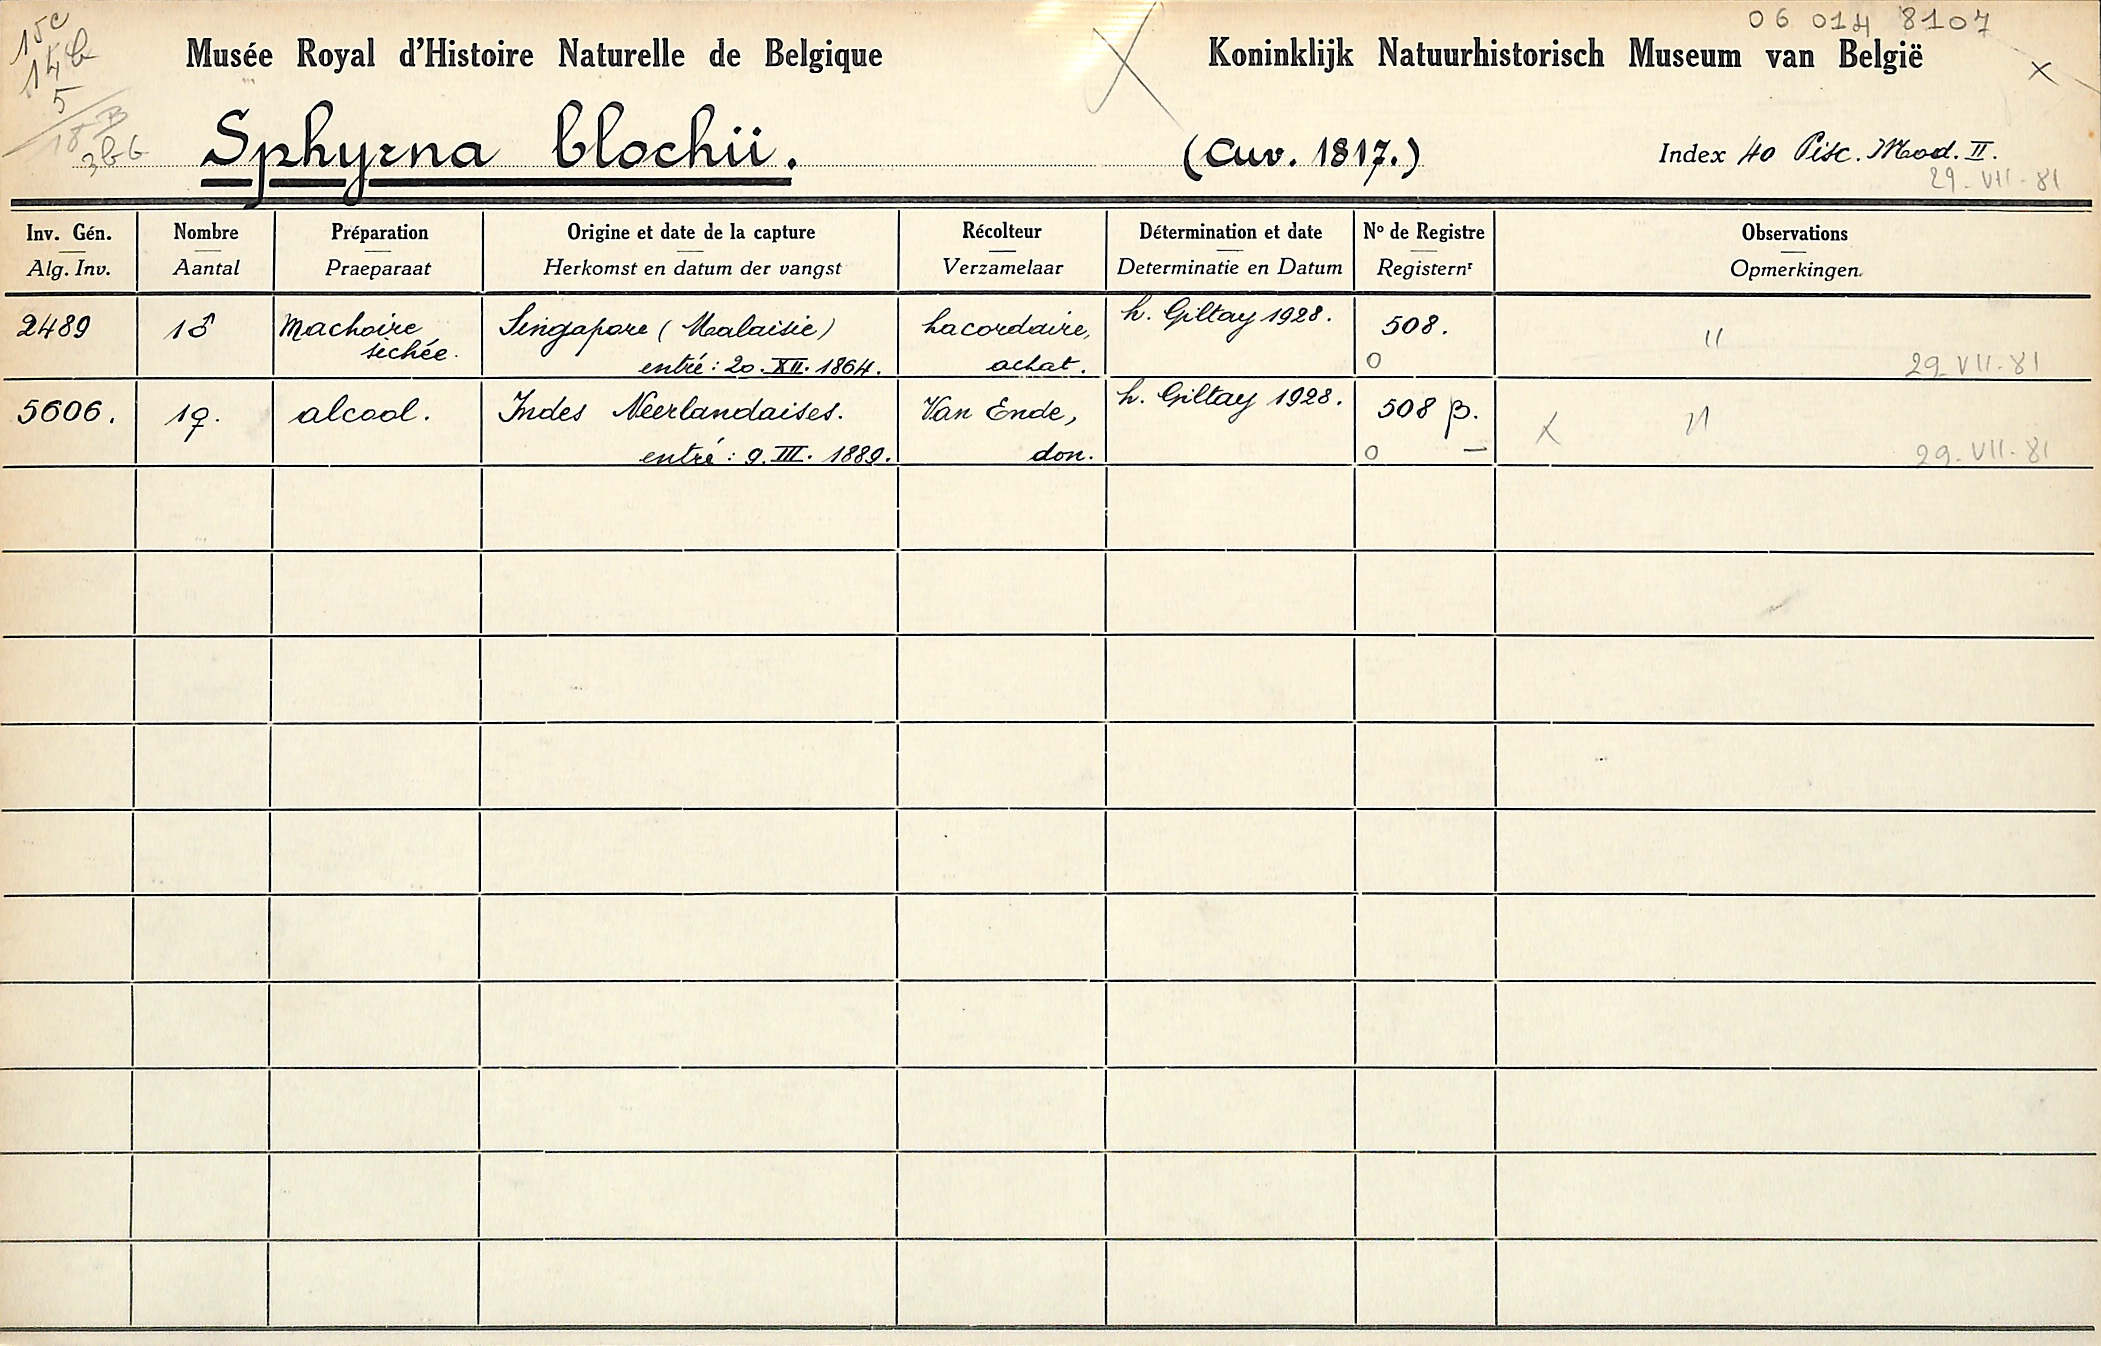 15c
14b
5
18 B
3bb
06 014 8107
Musée Royal d'Histoire Naturelle de Belgique
Koninklijk Natuurhistorisch Museum van België
x
Sphyrna blochii. (Cuv. 1817.) Index 40 Pisc. Mod. II.
29-VII-81
Inv. Gén. Nombre Préparation Origine et date de la capture Récolteur Détermination et date No de Registre Observations
Alg. Inv. Aantal Praeparaat Herkomst en datum der vangst Verzamelaar Determinatie en Datum Registernr Opmerkingen.
2489 1♂ Machoire Singapore (Malaisie) Lacordaire, L. Giltay 1928. 508. "
sèchée. entré: 20.XII.1864. achat. o 29-VII-81
5606. 1♀. alcool. Indes Néerlandaises. Van Ende, L. Giltay 1928. 508 β. x "
entré: 9.III.1889. don. o – 29-VII-81